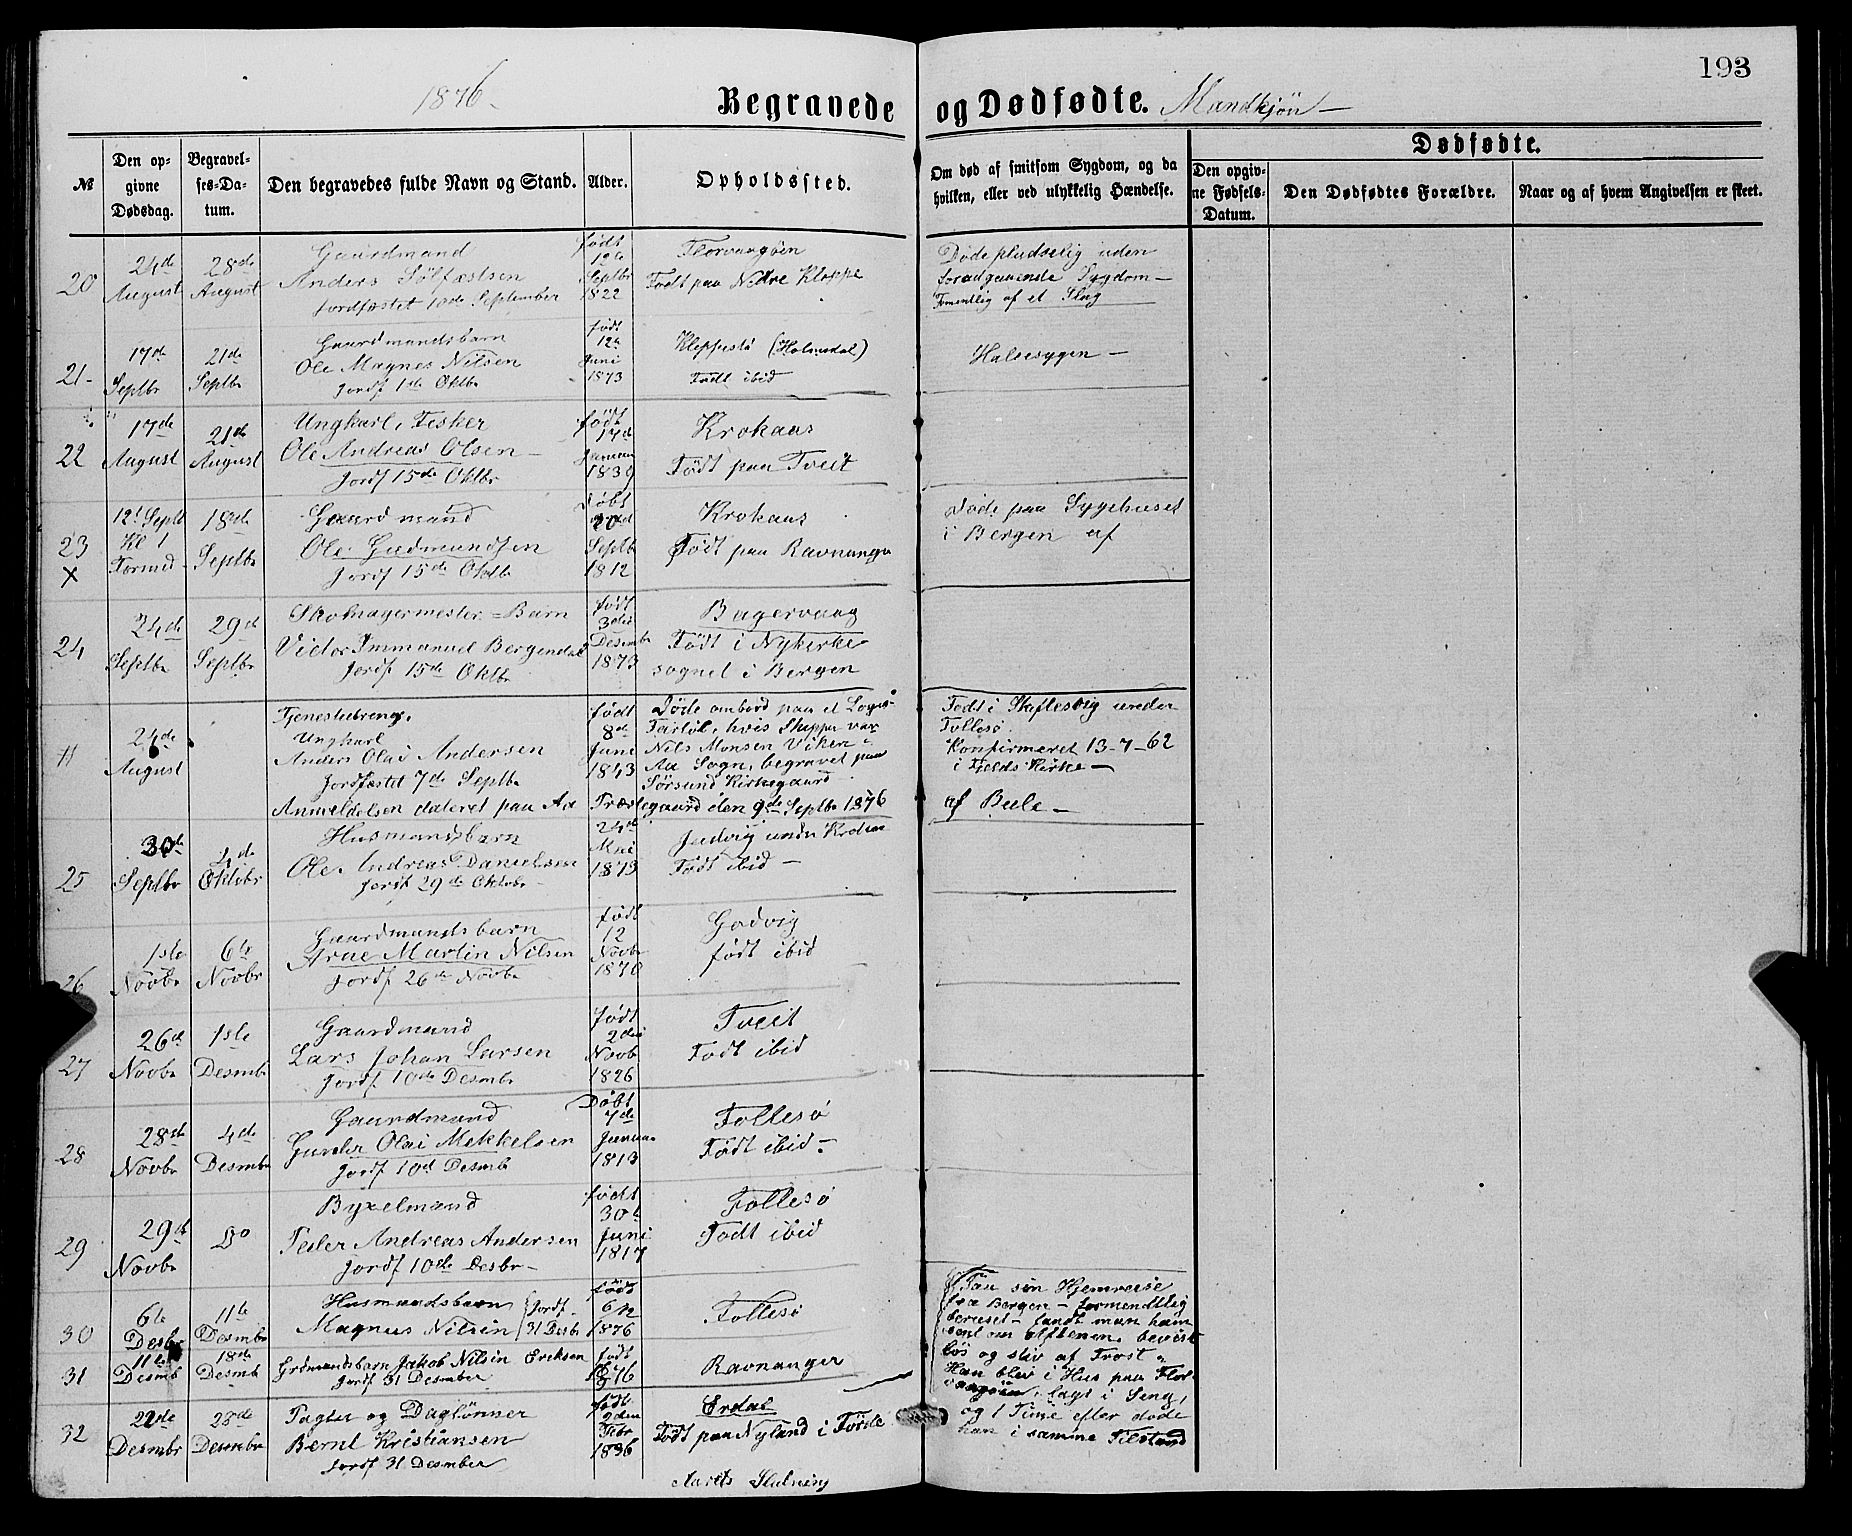 193
1876.
Begravede og Dødfødte. Mandkjøn
№
Den opgivne Dødsdag.
Begravelses-Datum.
Den begravedes fulde Navn og Stand.
Alder.
Opholdssted.
Om død af smitsom Sygdom, og da
hvilken, eller ved ulykkelig Hændelse.
Dødfødte.
Den opgivne Fødsels-Datum.
Den Dødfødtes Forældre.
Naar og af hvem Angivelsen er skeet.
20
24de August
28de August
Gaardmand
Anders Sølfæstsen
Jordfæstet 10de September
født 12te Septbr 1822
Florvangøen
Født paa Nedre Kleppe
Døde pludselig uden
foradgaaende Sygdom
Formentlig af et Slag
21
17de Septbr
21de Septbr
Gaardmandsbarn
Ole Magnes Nilsen
Jordf 1ste Oktbr
født 12te Juni 1873
Kleppestø (Holmedal)
Født ibid
Halsesygen
22
17de August
21de August
Ungkarl, Fisker
Ole Andreas Olsen
Jordf 15de Oktbr
født 17de Januar 1839
Krokaas
Født paa Tveit
23
X
12t Septb
Kl 1
Formd
18de Septbr
Gaardmand
Ole Gudmundsen
Jordf 15de Oktb
Døbt 20de Septbr 1812
Krokaas
Født paa Ravnanger
Døde paa Sygehuset
i Bergen af
24
24de Septbr
29de Septbr
Skomagermester-Barn
Victor Immanuel Bergendal
Jordf 15de Oktbr
født 30te Desembr 1873
Bagervaag
Født i Nykirke
sognet i Bergen
11
24de August
Tjenestedreng,
Ungkarl
Anders Olai Andersen
Jordfæstet 7de Septbr
født 8de Juni 1843
Døde ombord paa et Logis-
Fartøi, hvis Skipper var
Nils Monsen Viken i
Aa Sogn, begravet paa
Sørsund Kirkegaard
Anmeldelsen dateret paa Aa Præstegaard den 9de Septbr 1876
Født i Skiftesvig under
Follesø.
Konfirmeret 13-7-62
i Fjelds Kirke
af Bule
25
30de Septbr
4de Oktobr
Husmandsbarn
Ole Andreas Danielsen
Jordf 29de Oktobr
24de Mai 1873
Judvig under
Født ibid
26
1ste Novbr
6te Novbr
Gaardmandsbarn
Arne Martin Nilsen
Jordf 26de Novbr
født 12 Novbr 1870
Godvig
født ibid
27
26de Novbr
1ste Desmb
Gaardmand
Lars Johan Larsen
Jordf. 10de Desmbr
født 2den Novbr 1826
Tveit
Født ibid
28
28de Novbr
4de Desmbr
Gaardmand
Olai Mekkelsen
Jordf 10de Desmb
Døbt 7de Januar 1813
Follesø
Født ibid
29
29de Novbr
Do
Byxelmand
Peder Andreas Andersen
Jordf 10de Desbr
født 30te Juni 1817
Follesø
Født ibid
30
6te Desbr
11te Desmbr
Husmandsbarn
Magnus Nilsen
Jordf 31 Desbr
født 1876
Follesø
31
11te Desmb
18de Desmb
Grdmandsbarn Jakob Nilsin Eriksen
Jordf 31 Desmber
født 1876
Ravnanger
32
22de Desmbr
28de Desmbr
Pagter og Daglønner
Bernt Kristiansen
Jordf 31 Desmber
født 2den Febr 1836
Erdal
Født paa Nyland i Førde
Paa sin Hjemreise
fra Bergen - formentlig
beruset - fandt man ham
sent om aftenen, bevist
løs og stiv af Frost.
Han blev i Hus paa Flor-
vaagøen, lagt i Seng,
og 1 Time efter døde
han i samme Tilstand
Aarets Slutning